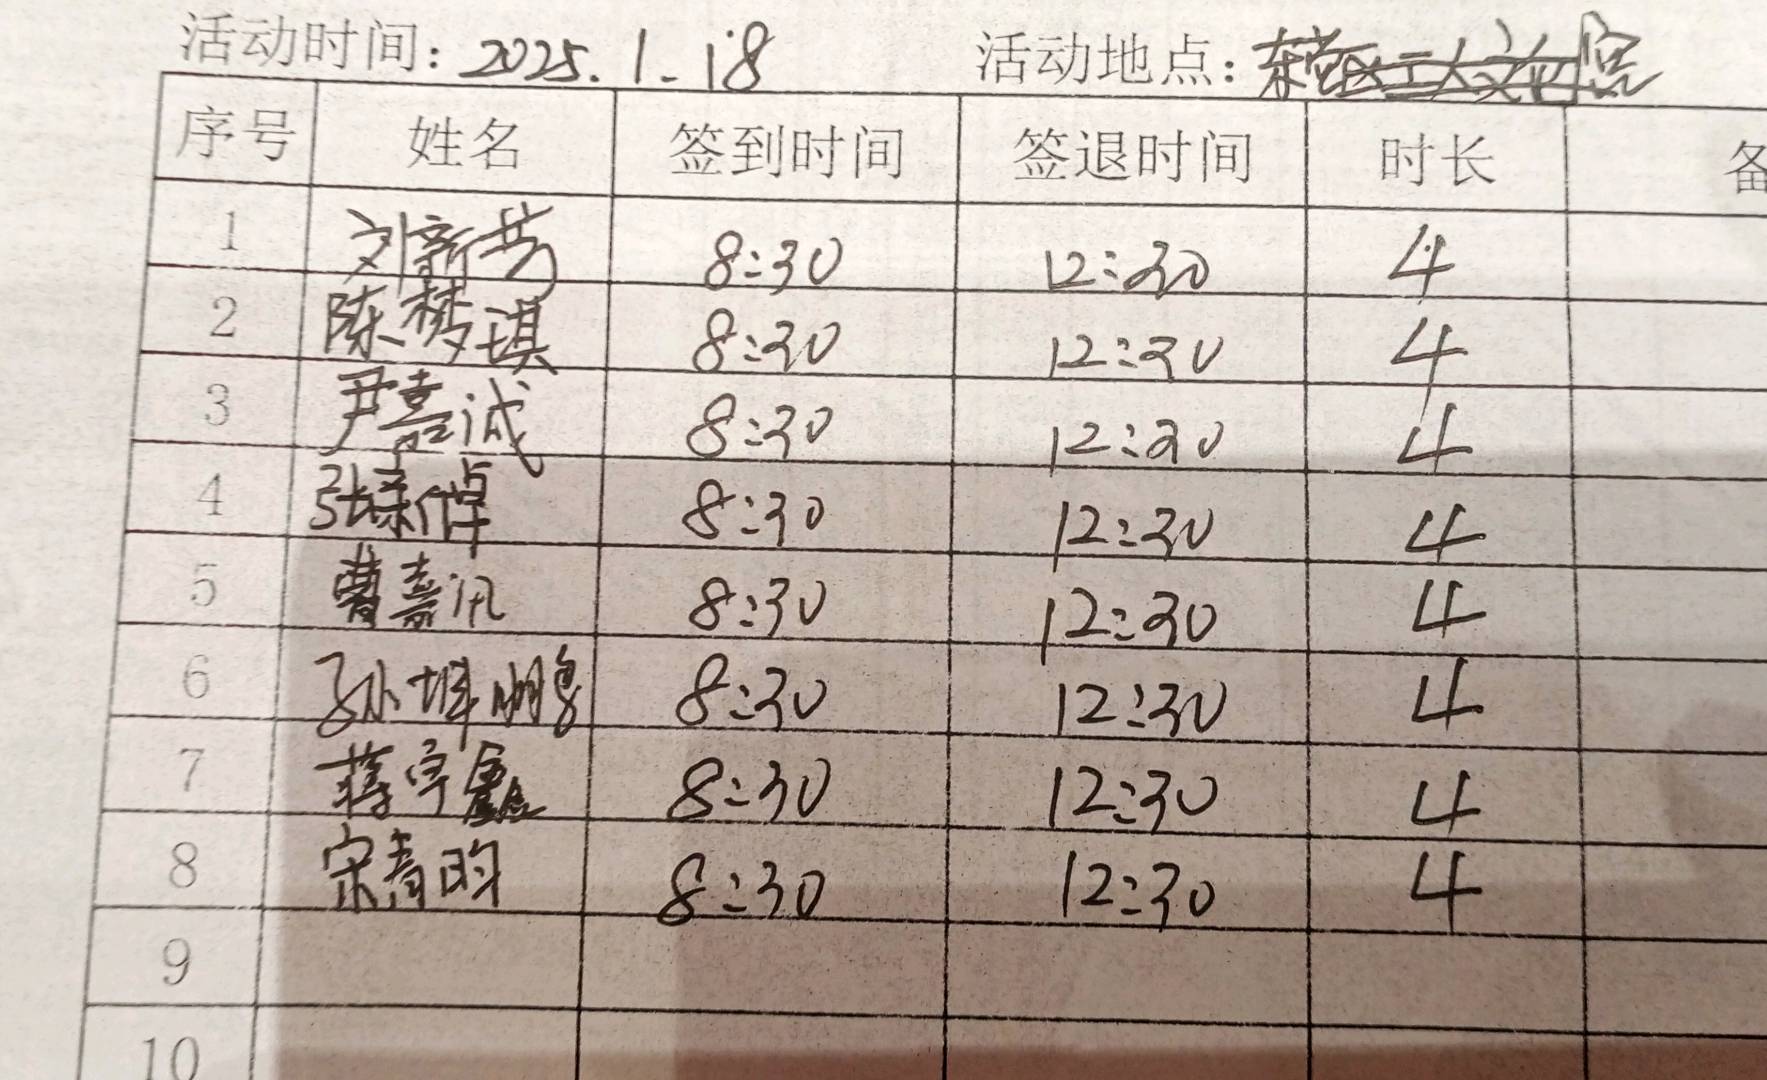 活动时间：2025.1.18 活动地点：东营区工人文化宫
序号 姓名 签到时间 签退时间 时长 备
1 刘新芳 8:30 12:30 4
2 陈梦琪 8:30 12:30 4
3 尹嘉诚 8:30 12:30 4
4 张 8:30 12:30 4
5 曹嘉汛 8:30 12:30 4
6 孙 鹏 8:30 12:30 4
7 蒋宇鑫 8:30 12:30 4
8 宋青昀 8:30 12:30 4
9
10